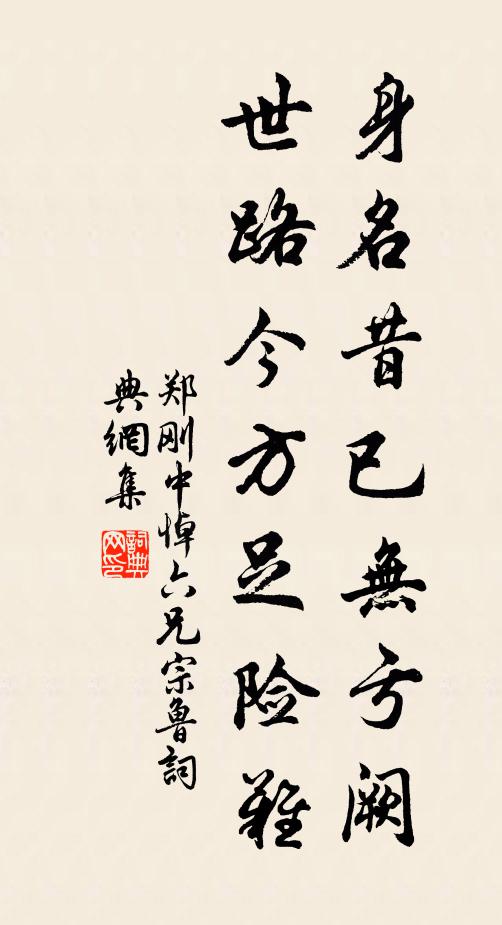 身名昔已無亏阙
世路今方足险難
郑刚中悼六兄宗鲁詞
典網集
詞典网印